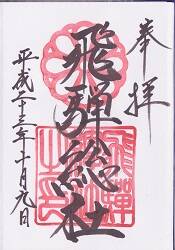 奉拝
飛騨総社
平成二十三年十月九日